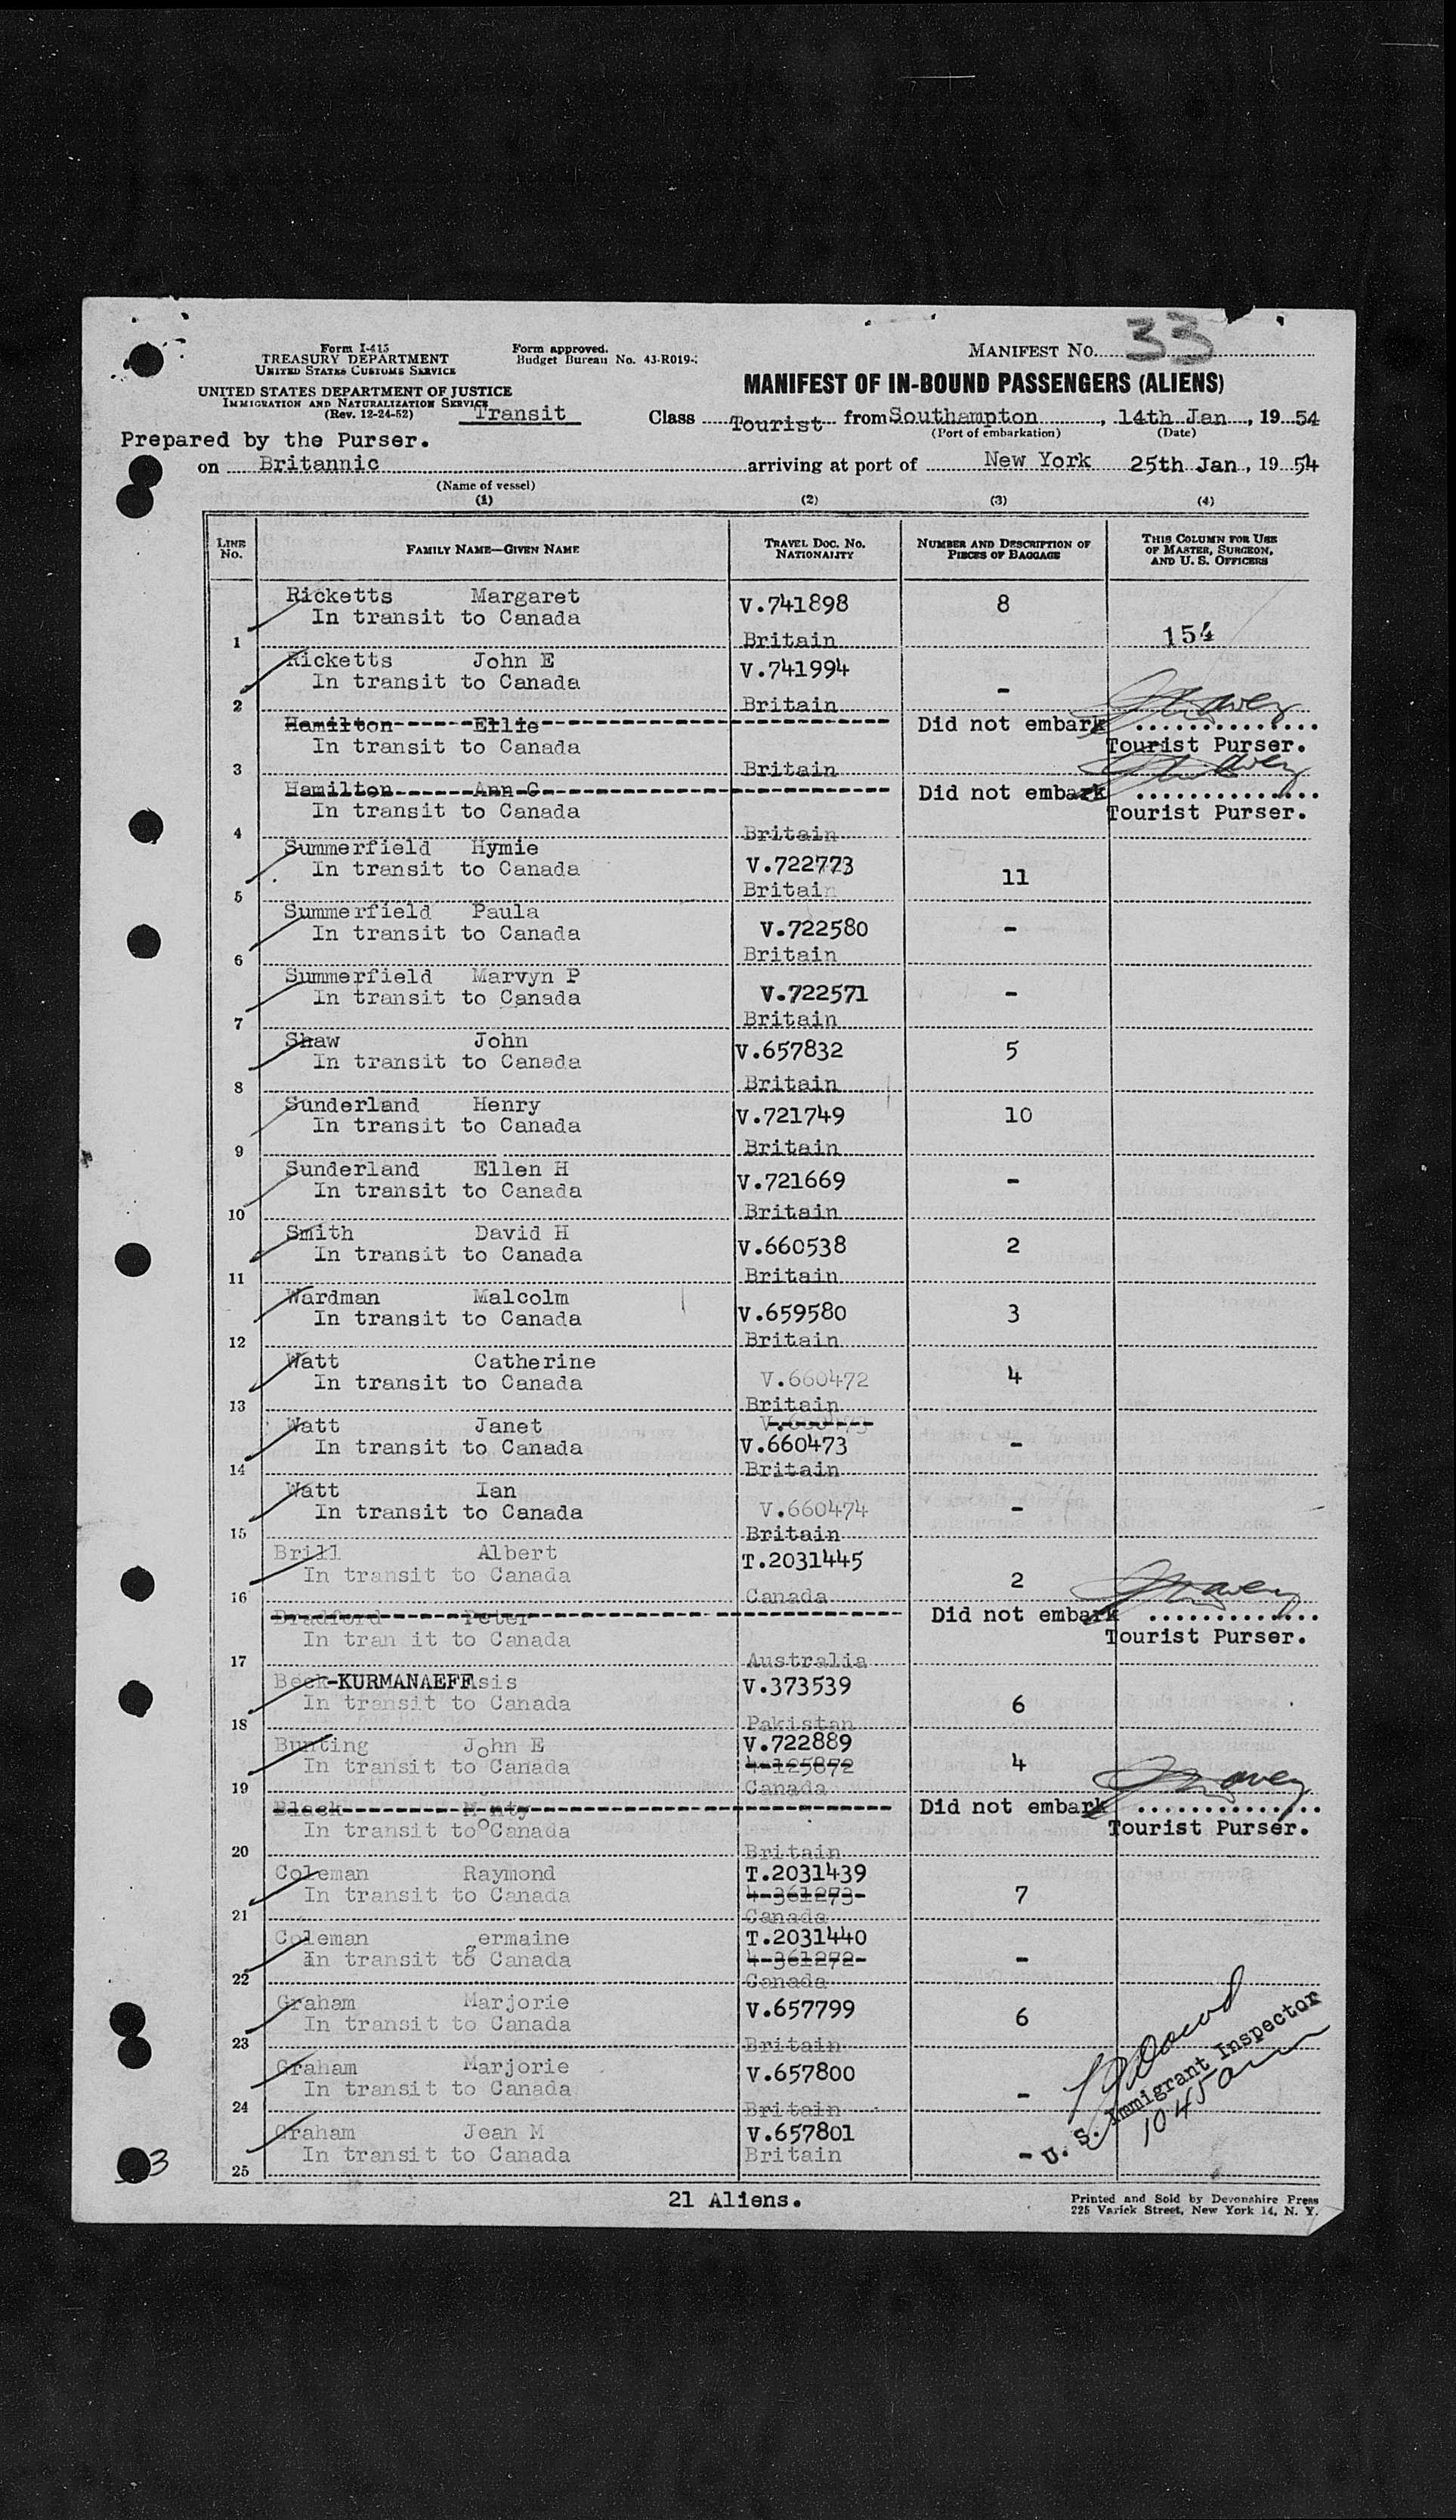 33
Form I-415
TREASURY DEPARTMENT
UNITED STATES CUSTOMS SERVICE
Form approved.
Budget Bureau No. 43-R019-
MANIFEST NO.
UNITED STATES DEPARTMENT OF JUSTICE
IMMIGRATION AND NATURALIZATION SERVICE
(Rev. 12-24-52)
Transit
MANIFEST OF IN-BOUND PASSENGERS (ALIENS)
Class Tourist from Southampton, 14th Jan, 1954
(Port of embarkation) (Date)
Prepared by the Purser.
on Britannic arriving at port of New York 25th Jan, 1954
(Name of vessel)
(1) (2) (3) (4)
LINE No. FAMILY NAME—GIVEN NAME TRAVEL DOC. NO. NATIONALITY NUMBER AND DESCRIPTION OF PIECES OF BAGGAGE THIS COLUMN FOR USE OF MASTER, SURGEON, AND U. S. OFFICERS
Ricketts Margaret V.741898 8
In transit to Canada
1 Britain 154
Ricketts John E V.741994
In transit to Canada -
2 Britain
Hamilton Ellie Did not embark
In transit to Canada Tourist Purser.
3 Britain
Hamilton Ann C Did not embark
In transit to Canada Tourist Purser.
4 Britain
Summerfield Hymie V.722773
In transit to Canada 11
5 Britain
Summerfield Paula V.722580
In transit to Canada -
6 Britain
Summerfield Marvyn P V.722571
In transit to Canada -
7 Britain
Shaw John V.657832 5
In transit to Canada
8 Britain
Sunderland Henry V.721749 10
In transit to Canada
9 Britain
Sunderland Ellen H V.721669 -
In transit to Canada
10 Britain
Smith David H V.660538 2
In transit to Canada
11 Britain
Wardman Malcolm V.659580 3
In transit to Canada
12 Britain
Watt Catherine V.660472 4
In transit to Canada
13 Britain
Watt Janet
In transit to Canada V.660473 -
14 Britain
Watt Ian V.660474 -
In transit to Canada
15 Britain
Brill Albert T.2031445
In transit to Canada 2
16 Canada
Bradford Peter Did not embark
In tran it to Canada Tourist Purser.
17 Australia
Beck-KURMANAEFF sis V.373539
In transit to Canada 6
18 Pakistan
Bunting John E V.722889
In transit to Canada 4-125872 4
19 Canada
Black Monty Did not embark
In transit to Canada Tourist Purser.
20 Britain
Coleman Raymond T.2031439
In transit to Canada 4-361273 7
21 Canada
Coleman germaine T.2031440
In transit to Canada 4-361272 -
22 Canada
Graham Marjorie V.657799 6
In transit to Canada
23 Britain
Graham Marjorie V.657800
In transit to Canada -
24 Britain
Graham Jean M V.657801
In transit to Canada Britain -
25
U. S. Immigrant Inspector
1045 am
3
21 Aliens.
Printed and Sold by Devonshire Press
225 Varick Street, New York 14, N. Y.